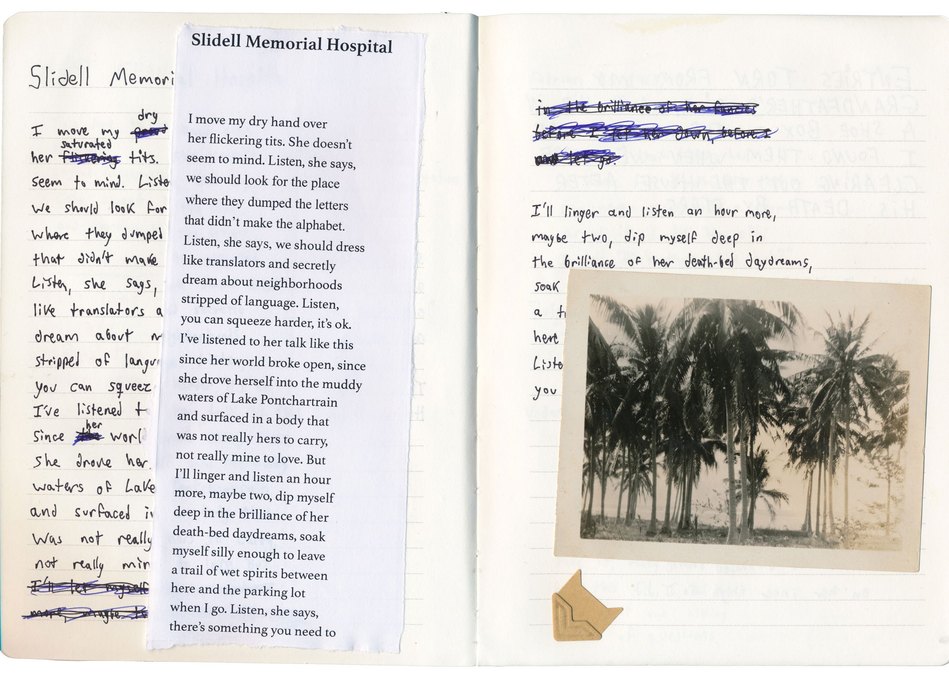 Slidell Memori
dry
I move my
saturated
her flickering tits.
seem to mind. Liste
we should look for
where they dumped
that didn't make
Listen, she says,
like translators a
dream about n
stripped of langu
you can squeez
I've listened t
her
since worl
she drove her
waters of Lake
and surfaced i
was not really
not really min
I'll let myself
more, maybe t
Slidell Memorial Hospital
I move my dry hand over
her flickering tits. She doesn't
seem to mind. Listen, she says,
we should look for the place
where they dumped the letters
that didn't make the alphabet.
Listen, she says, we should dress
like translators and secretly
dream about neighborhoods
stripped of language. Listen,
you can squeeze harder, it's ok.
I've listened to her talk like this
since her world broke open, since
she drove herself into the muddy
waters of Lake Pontchartrain
and surfaced in a body that
was not really hers to carry,
not really mine to love. But
I'll linger and listen an hour
more, maybe two, dip myself
deep in the brilliance of her
death-bed daydreams, soak
myself silly enough to leave
a trail of wet spirits between
here and the parking lot
when I go. Listen, she says,
there's something you need to
in the brilliance of her fancies
before I let her down, before I
and let go.
I'll linger and listen an hour more,
maybe two, dip myself deep in
the brilliance of her death-bed daydreams,
soak
a tr
here
Liste
you